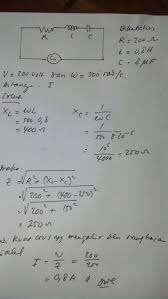 R L C
Diketahui
R = 200 Ω
L = 0,8 H
C = 8 μF
V = 200 volt dan ω = 500 rad/s
Ditanya : I
XL = ωL
= 500 . 0,8
= 400 Ω
Xc = 1/ωC
= 1/500 . 8.10⁻⁶
= 10⁶/4000 = 250 Ω
maka
Z = √R² + (XL - Xc)²
= √200² + (400 - 250)²
= √200² + 150²
= 250 Ω
Kuat arus yg mengalir dlm rangkaian
I = V/Z = 200/250
= 0,8 A